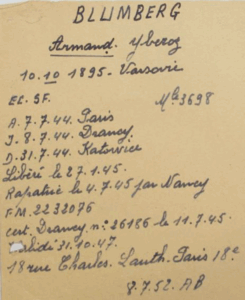 BLUMBERG
Armand. Yberoz
10.10 1895 - Varsovie
EL. SF.
Mle 3698
A. 7.7.44. Paris
I. 8.7.44. Drancy
D. 31.7.44. Katowice
Libéré le 27.1.45.
Rapatrié le 4.7.45 par Nancy
F.M. 2232076
cert. Drancy n° 26186 le 11.7.45.
31.10.47.
18 rue Charles. Lauth. Paris 18e
8.7.52. AB